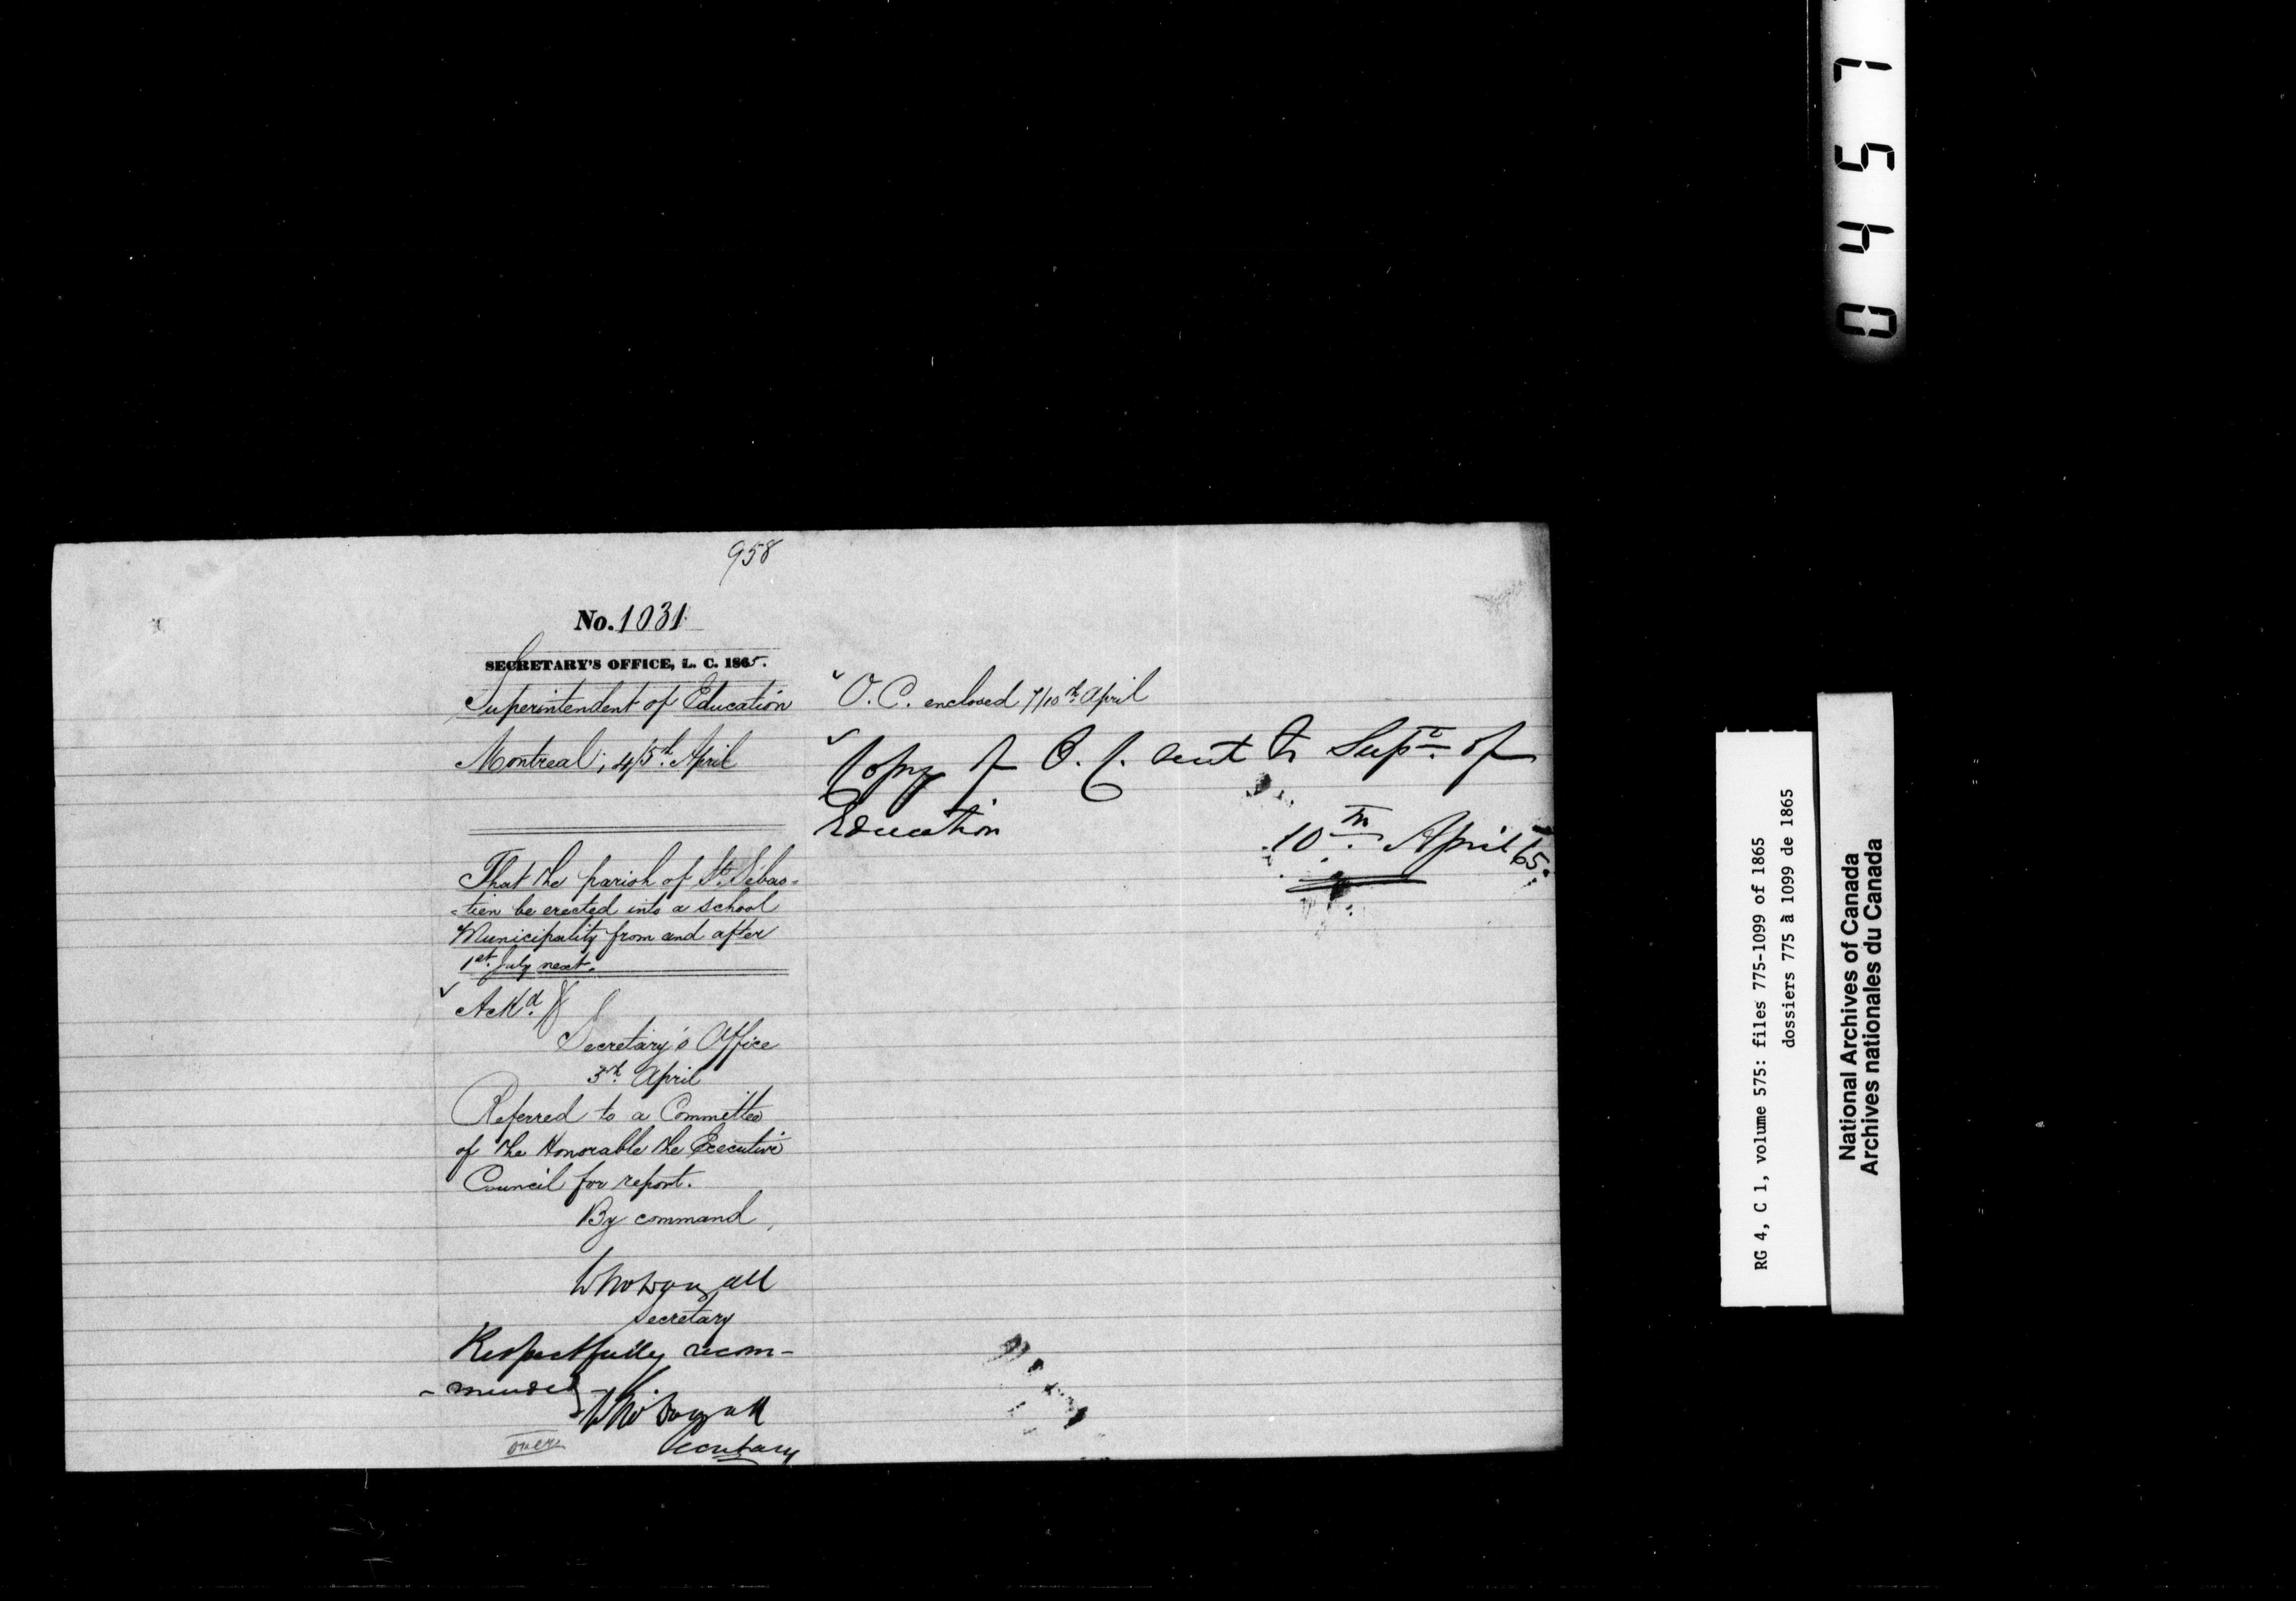 958
No. 1031
SECRETARY'S OFFICE, L. C. 1865.
Superintendent of Education
Montreal; 4/5th April
That the parish of St. Sébas=
=tien be erected into a school
Municipality from and after
1st July next.
Ackd.
Secretary's Office
5th April
Referred to a Committee
of the Honorable the Executive
Council for report.
By command,
Wm McDougall
Secretary
Respectfully recom-
-mended
Wm McDougall
Secretary
over
O. C. enclosed 7/10th April
Copy of O. C. sent to Supt. of
Education
10th April 65.
0457
RG 4, C 1, volume 575: files 775-1099 of 1865
dossiers 775 à 1099 de 1865
National Archives of Canada
Archives nationales du Canada